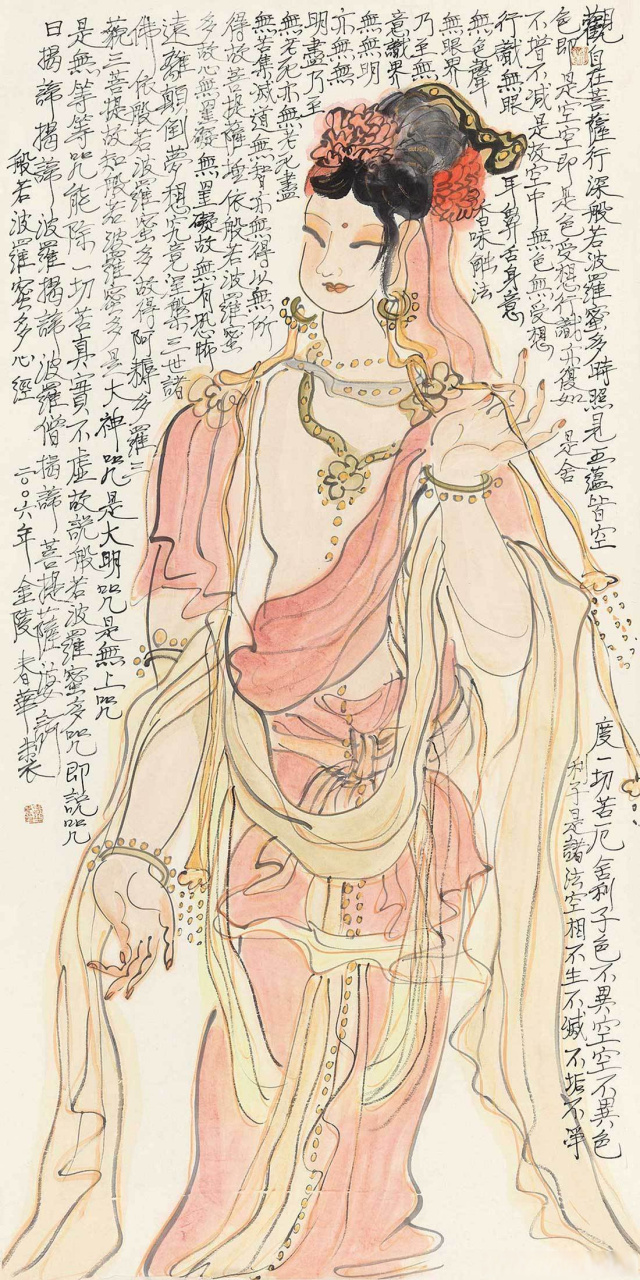 觀自在菩薩行深般若波羅蜜多時照見五蘊皆空
度一切苦厄舍利子色不異空空不異色
色即是空空即是色受想行識亦復如是舍
利子是諸法空相不生不滅不垢不淨
不增不減是故空中無色無受想
行識無眼耳鼻舌身意
無色聲香味觸法
無眼界
乃至無
意識界
無無明
亦無無
明盡乃至
無老死亦無老死盡
無苦集滅道無智亦無得以無所
得故菩提薩埵依般若波羅蜜
多故心無罣礙無罣礙故無有恐怖
遠離顛倒夢想究竟涅槃三世諸
佛依般若波羅蜜多故得阿耨多羅三
藐三菩提故知般若波羅蜜多是大神咒是大明咒是無上咒
是無等等咒能除一切苦真實不虛故說般若波羅蜜多咒即說咒
曰揭諦揭諦波羅揭諦波羅僧揭諦菩提薩婆訶
般若波羅蜜多心經 二〇〇六年金陵春華製